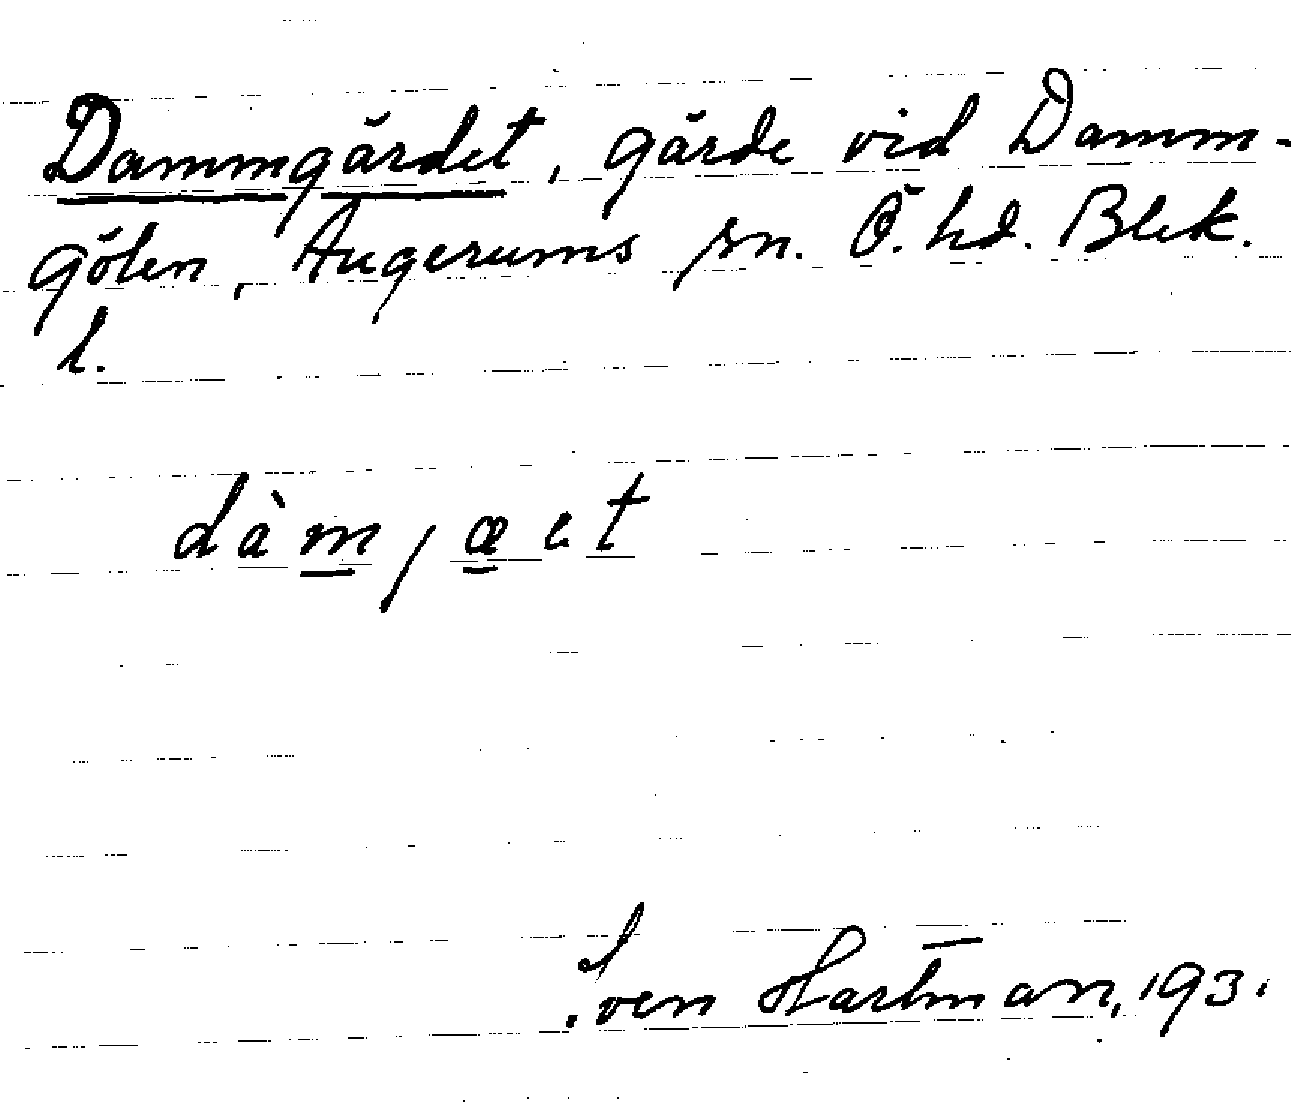 Dammgärdet, gärde vid Damm-
gölen, Augerums sn. Ö. hd. Blek.
l.
dàm, æet
Sven Hartman, 1931